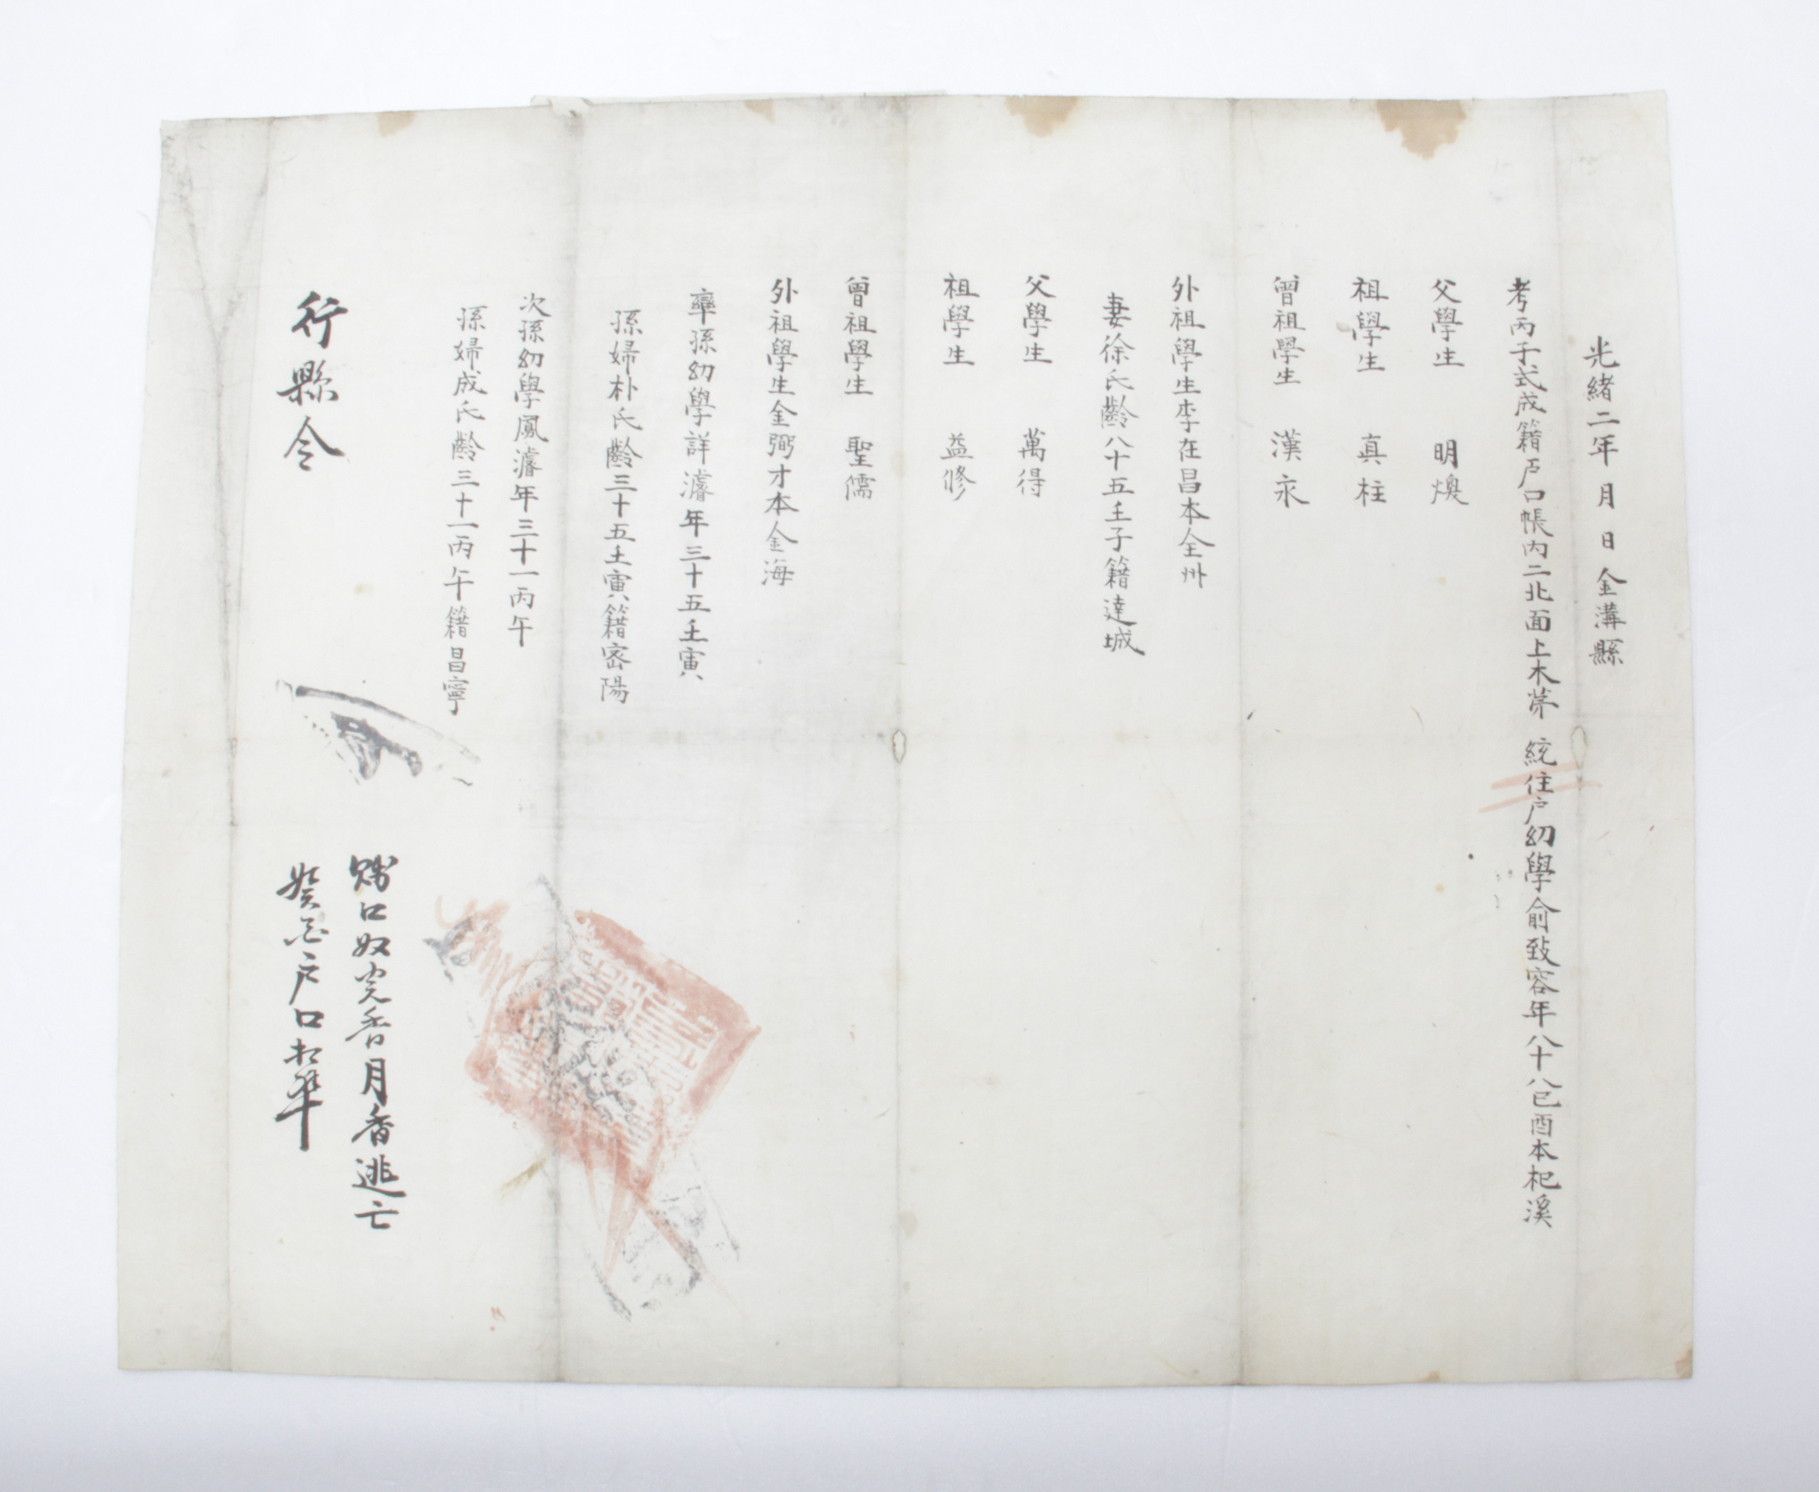 光緖二年 月 日 金溝縣
考丙子式成籍戶口帳內二北面上木第 統 住戶幼學俞致容年八十八己酉本杞溪
父學生 明煥
祖學生 真柱
曾祖學生 漢永
外祖學生李在昌本全州
妻徐氏齡八十五壬子籍達城
父學生 萬得
祖學生 益修
曾祖學生 聖儒
外祖學生金弼才本金海
率孫幼學詳濬年三十五壬寅
孫婦朴氏齡三十五壬寅籍密陽
次孫幼學鳳濬年三十一丙午
孫婦成氏齡三十一丙午籍昌寧
行縣令
賤口奴 香月香逃亡
癸酉戶口相準